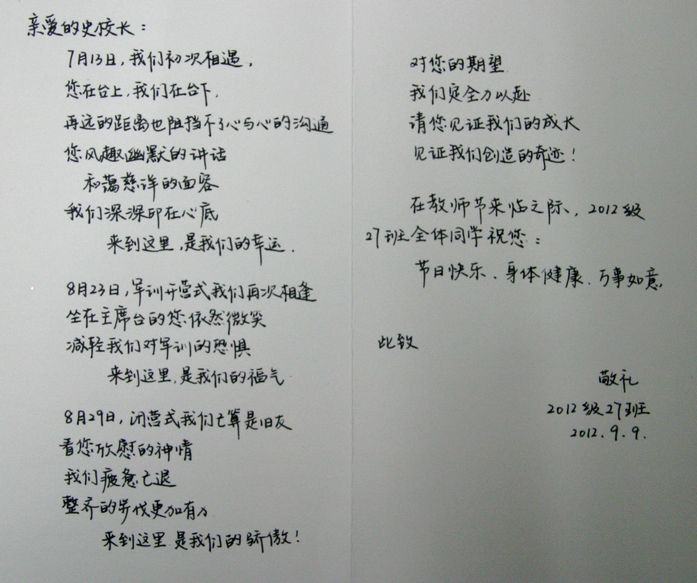 亲爱的史校长：
7月13日，我们初次相遇，
您在台上，我们在台下，
再远的距离也阻挡不了心与心的沟通
您风趣幽默的讲话
和蔼慈祥的面容
我们深深印在心底
来到这里，是我们的幸运．
8月23日，军训开营式我们再次相逢
坐在主席台的您依然微笑
减轻我们对军训的恐惧
来到这里，是我们的福气
8月29日，闭营式我们已算是旧友
看您欣慰的神情
我们疲惫已退
整齐的步伐更加有力
来到这里是我们的骄傲！
对您的期望
我们定全力以赴
请您见证我们的成长
见证我们创造的奇迹！
在教师节来临之际，2012级
27班全体同学祝您：
节日快乐、身体健康、万事如意
此致
敬礼
2012级27班
2012.9.9.